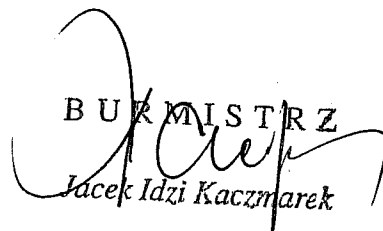 BURMISTRZ
Jacek Idzi Kaczmarek